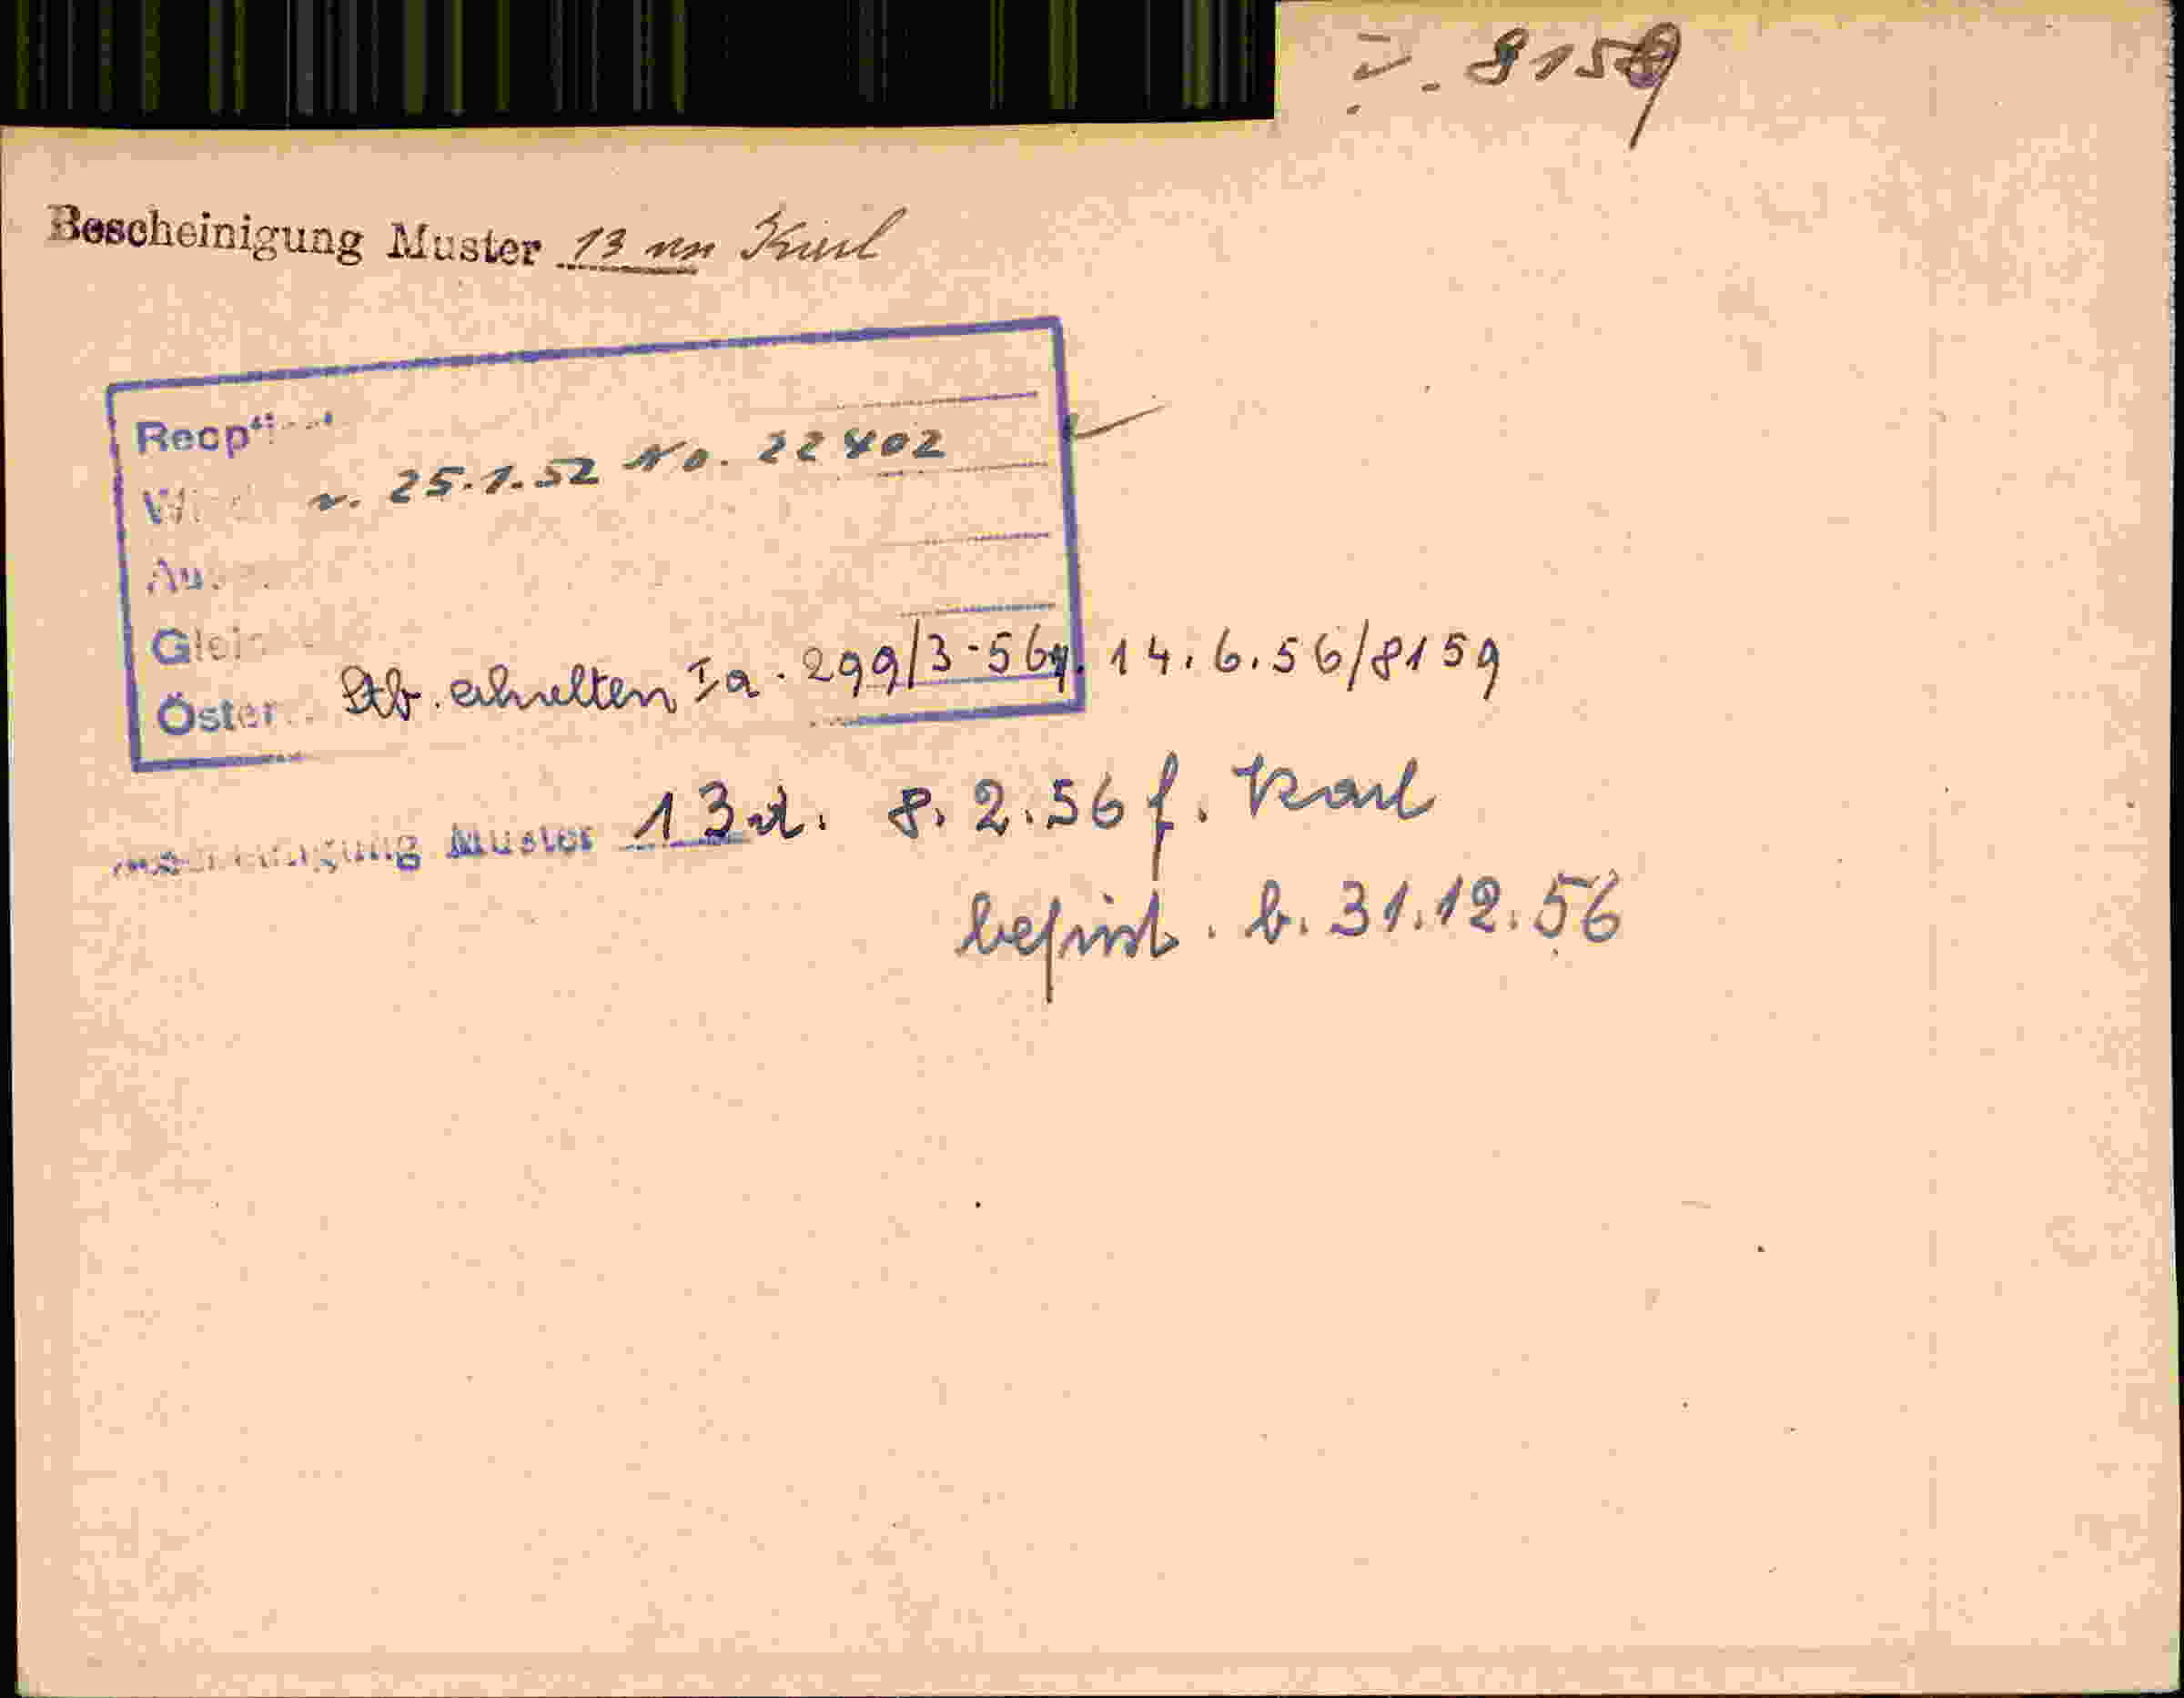 8159
Bescheinigung Muster 13 Karl
v. 25.1.52 No. 22402
Stb. erhalten Ia. 299/3-56 v. 14.6.56/8159
Muster 13 8.2.56 f. Karl
befrist. b. 31.12.56